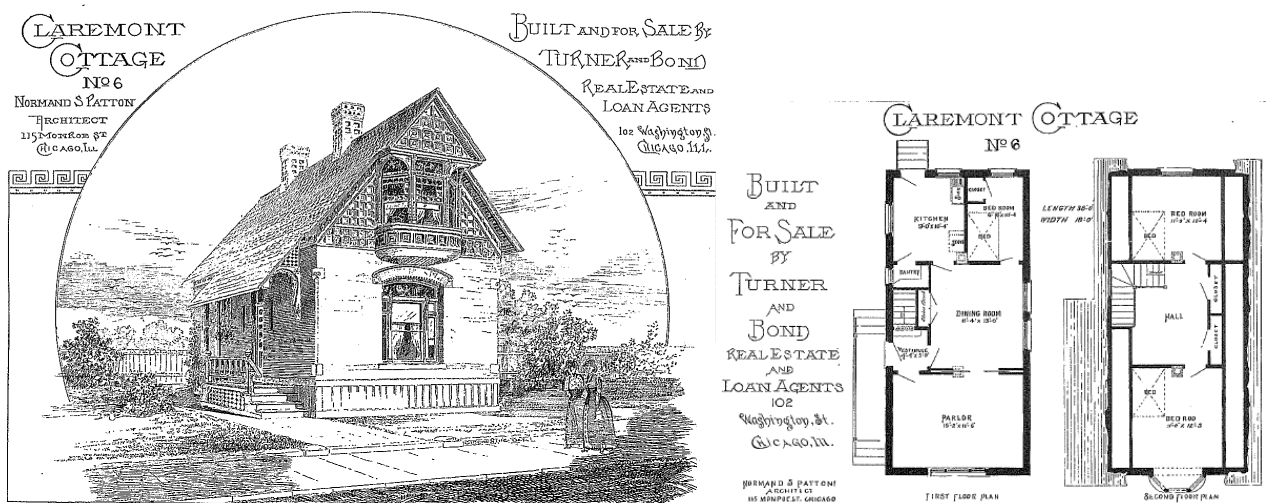 CLAREMONT
COTTAGE
No 6
NORMAND S PATTON
ARCHITECT
115 MONROE ST
CHICAGO, ILL
BUILT AND FOR SALE BY
TURNER AND BOND
REAL ESTATE AND
LOAN AGENTS
102 Washington St.
CHICAGO, ILL.
BUILT
AND
FOR SALE
BY
TURNER
AND
BOND
REAL ESTATE
AND
LOAN AGENTS
102
Washington, St.
CHICAGO, ILL.
NORMAND S PATTON
ARCHITECT
115 MONROE ST. CHICAGO
CLAREMONT COTTAGE
No 6
KITCHEN
CLOSET
BED ROOM
BED
PANTRY
DINING ROOM
VESTIBULE
PARLOR
FIRST FLOOR PLAN
LENGTH
WIDTH
BED ROOM
BED
HALL
CLOSET
CLOSET
BED
BED ROO
SECOND FLOOR PLAN